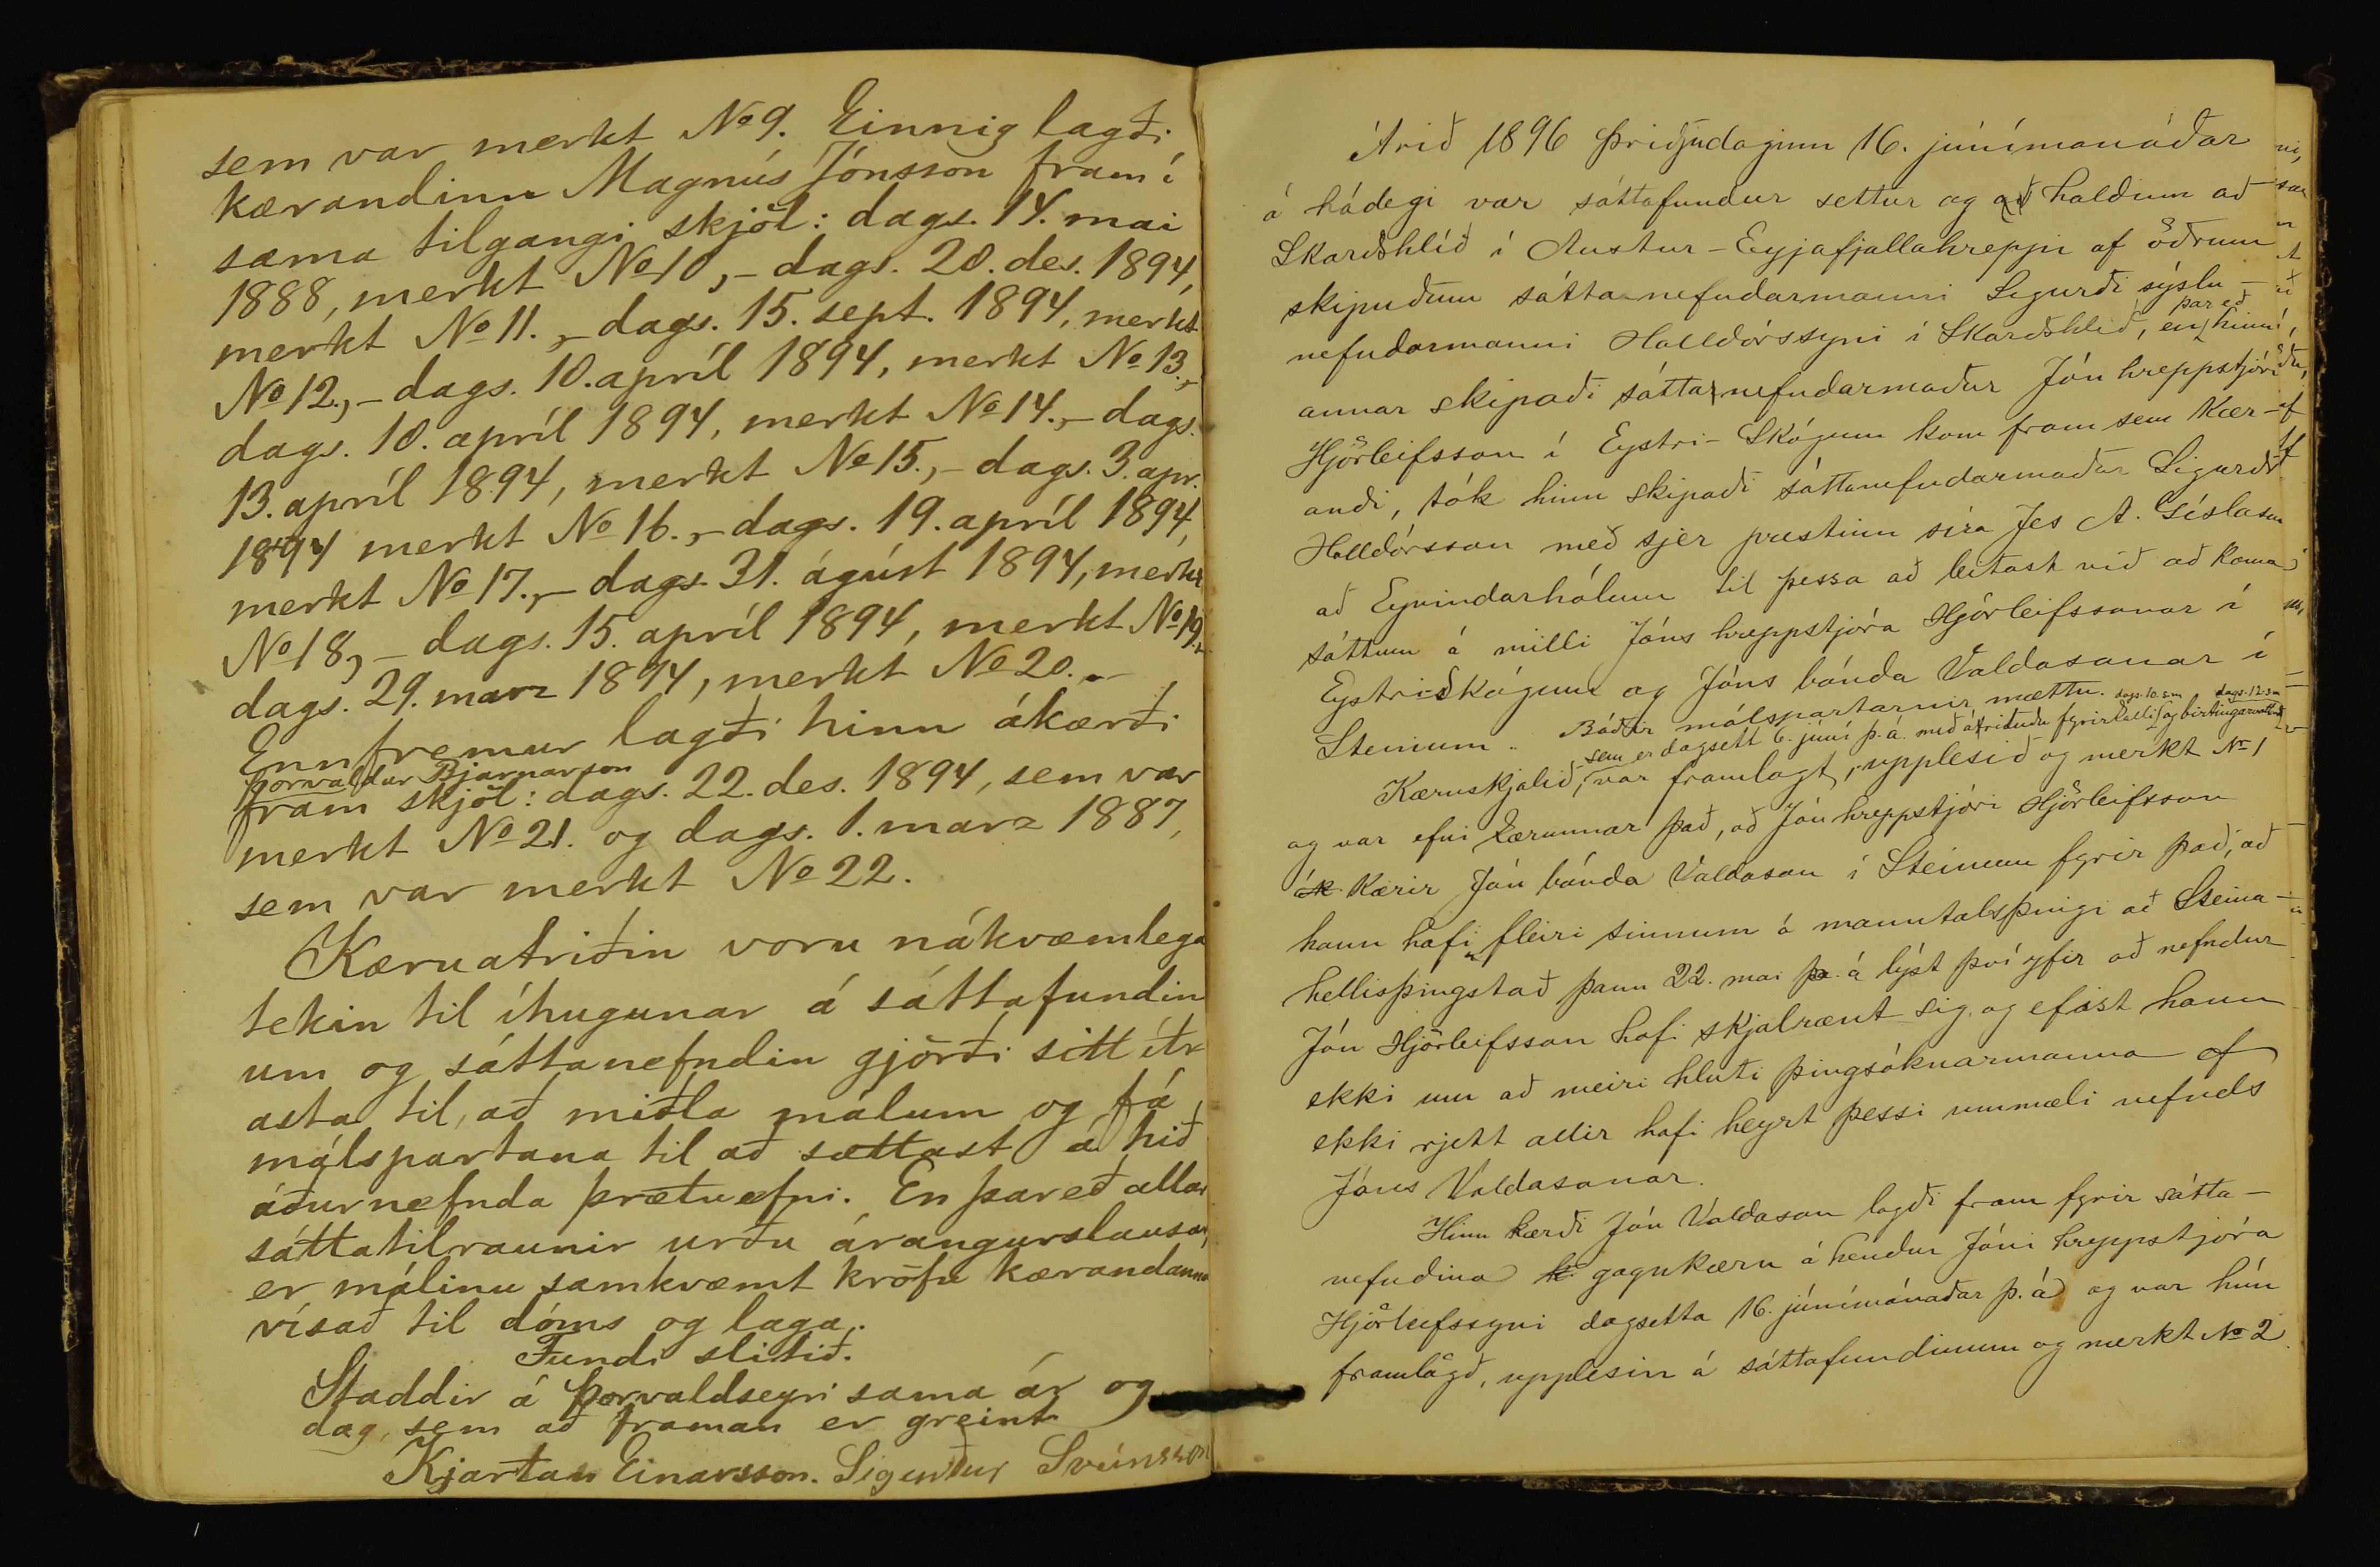 sem var merkt No 9. Einnig lagði
kærandinn Magnús Jónsson fram í
sama tilgangi skjöl: dags. 14. mai
1888, merkt No 10, - dags. 20. des. 1894,
merkt No 11., - dags. 15. sept. 1894, merkt
No 12., - dags. 10. apríl 1894, merkt No 13., -
dags. 10. apríl 1894, merkt No 14., - dags.
13. apríl 1894, merkt No 15., - dags. 3. apr.
1894 merkt No 16., - dags. 19. apríl 1894,
merkt No 17., - dags. 31. ágúst 1894, merkt
No 18, - dags. 15. apríl 1894, merkt No 19., -
dags. 29. marz 1894, merkt No 20. -
Enn fremur lagði hinn ákærði
Þorvaldur Bjarnarson
fram skjöl: dags. 22. des. 1894, sem var
merkt No 21. og dags. 1. marz 1887,
sem var merkt No 22.
Kæruatriðin voru nákvæmlega
tekin til íhugunar á sáttafundin
um og sáttanefndin gjörði sitt ítr
asta til, að miðla málum og fá
málspartana til að sættast á hið
áðurnefnda þrætuefni. En þareð allar
sáttatilraunir urðu árangurslausar,
er málinu samkvæmt kröfu kærandanna
vísað til dóms og laga.
Fundi slitið.
Staddir á Þorvaldseyri sama ár og
dag, sem að framan er greint
Kjartan Einarsson. Sigurður Sveinsson
Árið 1896 þriðjudaginn 16. júnímánaðar
á hádegi var sáttafundur settur og haldinn að
Skarðshlíð í Austur-Eyjafjallahreppi af öðrum
skipuðum sáttanefndarmanni Sigurði sýslu-
nefndarmanni Halldórssyni í Skarðshlíð, en þar eð hinn
annar skipaði sáttanefndarmaður Jón hreppstjóri
Hjörleifsson í Eystri-Skógum kom fram sem kær-
andi, tók hinn skipaði sáttanefndarmaður Sigurðr
Halldórsson með sjer prestinn síra Jes A. Gíslason
að Eyvindarhólum til þessa að leitast við að koma
sáttum á milli Jóns hreppstjóra Hjörleifssonar í
EystriSkógum og Jóns bónda Valdasonar í
Steinum. Báðir málspartarnir mættu.
sem er dagsett 6. júní þ. á. með áritiðu fyrirkalli dags. 10. s. m. og birtingarvottorði dags. 12. s. m
Kæruskjalið, var framlagt, upplesið og merkt No 1
og var efni kærunnar það, að Jón hreppstjóri Hjörleifsson
kærir Jón bónda Valdason í Steinum fyrir það, að
hann hafi fleiri sinnum á manntalsþingi að Steina-
hellisþingstað þann 22. mai þ. á lýst því yfir að nefndur
Jón Hjörleifsson hafi skjalrænt sig og efast hann
ekki um að meiri hluti þingsóknarmanna ef
ekki rjett allir hafi heyrt þessi ummæli nefnds
Jóns Valdasonar.
Hinn kærði Jón Valdason lagði fram fyrir sátta-
nefndina gagnkæru á hendur Jóni hreppstjóra
Hjörleifssyni dagsetta 16. júnímánaðar þ. á og var hún
framlögð, upplesin á sáttafundinum og merkt No 2.